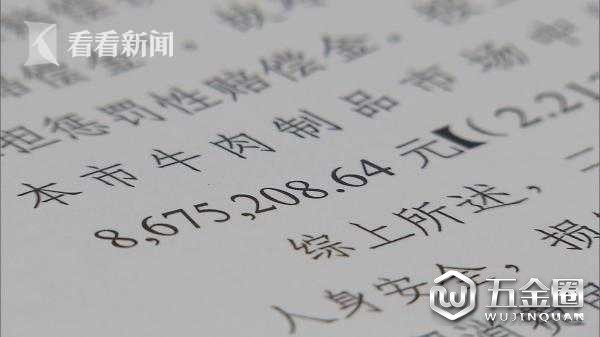 看看新闻
赔偿金，
担惩罚性赔偿金，按
本市牛肉制品市场
8,675,208.64 元【（2.21
综上所述，二
人身安全，损
五金圈
WUJINQUAN